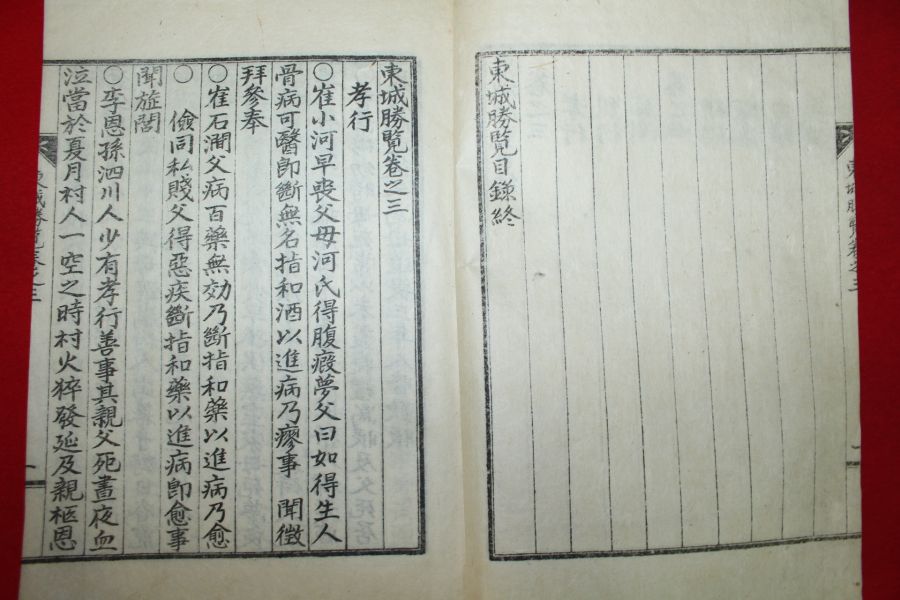 東城勝覽目錄終
東城勝覽卷之三
孝行
○崔小河早喪父母河氏得腹瘕夢父曰如得生人
骨病可醫卽斷無名指和酒以進病乃瘳事 聞徵
拜參奉
○崔石澗父病百藥無効乃斷指和藥以進病乃愈
○ 儉同私賤父得惡疾斷指和藥以進病卽愈事
聞旌閭
○李恩孫泗川人少有孝行善事其親父死晝夜血
泣當於夏月村人一空之時村火猝發延及親柩恩